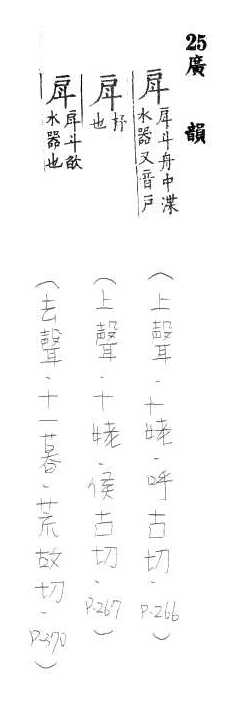 25廣韻
戽 戽斗舟中渫
水器又音戶
(上聲．十姥．呼古切．P.266)
戽 抒
也
(上聲．十姥．侯古切．P.267)
戽 戽斗飲
水器也
(去聲．十一暮．荒故切．P.370)